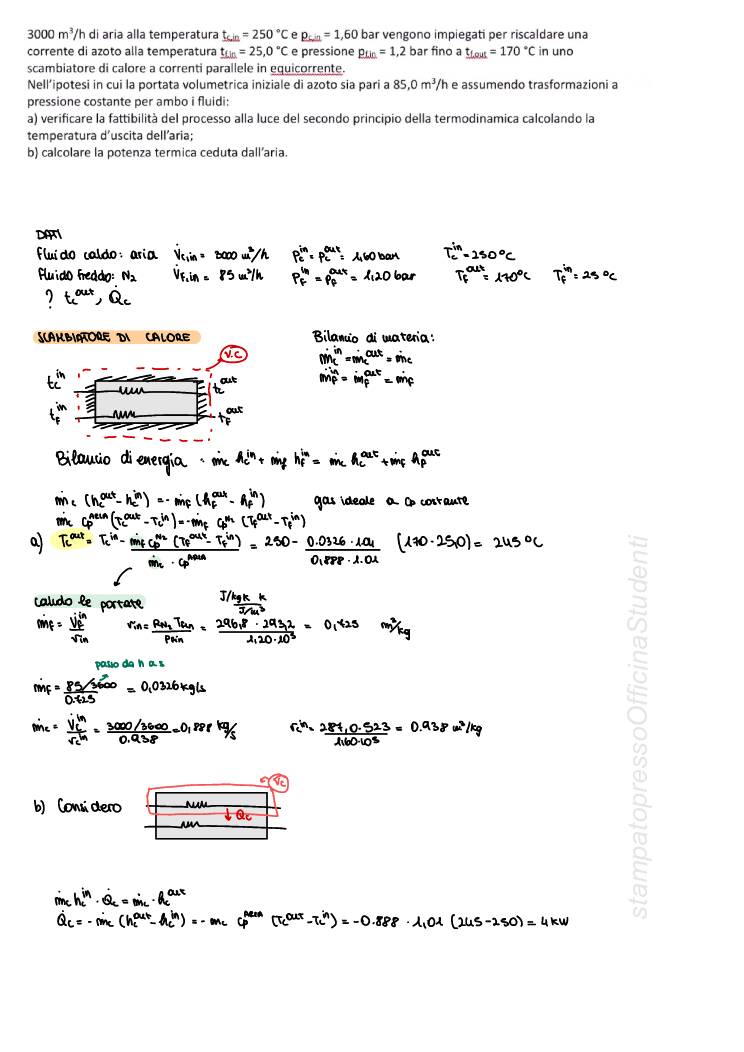 3000 m³/h di aria alla temperatura t_c,in = 250 °C e p_c,in = 1,60 bar vengono impiegati per riscaldare una
corrente di azoto alla temperatura t_f,in = 25,0 °C e pressione p_f,in = 1,2 bar fino a t_f,out = 170 °C in uno
scambiatore di calore a correnti parallele in equicorrente.
Nell'ipotesi in cui la portata volumetrica iniziale di azoto sia pari a 85,0 m³/h e assumendo trasformazioni a
pressione costante per ambo i fluidi:
a) verificare la fattibilità del processo alla luce del secondo principio della termodinamica calcolando la
temperatura d'uscita dell'aria;
b) calcolare la potenza termica ceduta dall'aria.
DATI
fluido caldo: aria V̇c,in = 3000 m³/h Pc^in = Pc^out = 1,60 bar Tc^in = 250°C
fluido freddo: N2 V̇f,in = 85 m³/h Pf^in = Pf^out = 1,20 bar Tf^out = 170°C Tf^in = 25°C
? tc^out, Q̇c
SCAMBIATORE DI CALORE
V.C
Bilancio di materia:
ṁc^in = ṁc^out = ṁc
ṁf^in = ṁf^out = ṁf
tc^in tc^out
tf^in tf^out
Bilancio di energia : ṁc hc^in + ṁf hf^in = ṁc hc^out + ṁf hf^out
ṁc (hc^out - hc^in) = - ṁf (hf^out - hf^in) gas ideale a cp costante
ṁc cp^ARIA (Tc^out - Tc^in) = - ṁf cp^N2 (Tf^out - Tf^in)
a) Tc^out = Tc^in - ṁf cp^N2 (Tf^out - Tf^in) / ṁc · cp^ARIA = 250 - 0.0326 · 1.04 / 0,888 · 1.01 (170 - 25,0) = 245 °C
calcolo le portate
J/kgK K / J/m³
ṁf = V̇f^in / vin vin = RN2 Tf,in / Pf,in = 296,8 · 293,2 / 1,20 · 10⁵ = 0,725 m³/kg
passo da h a s
ṁf = 85/3600 / 0.725 = 0,0326 kg/s
ṁc = V̇c^in / vc^in = 3000/3600 / 0.938 = 0,888 kg/s vc^in = 287,0 · 523 / 1,60·10⁵ = 0.938 m³/kg
VC
b) Considero
Q̇c
ṁc hc^in · Q̇c = ṁc · hc^out
Q̇c = - ṁc (hc^out - hc^in) = - mc cp^ARIA (Tc^out - Tc^in) = - 0.888 · 1,01 (245 - 250) = 4 kW
stampatopressoOfficinaStudenti